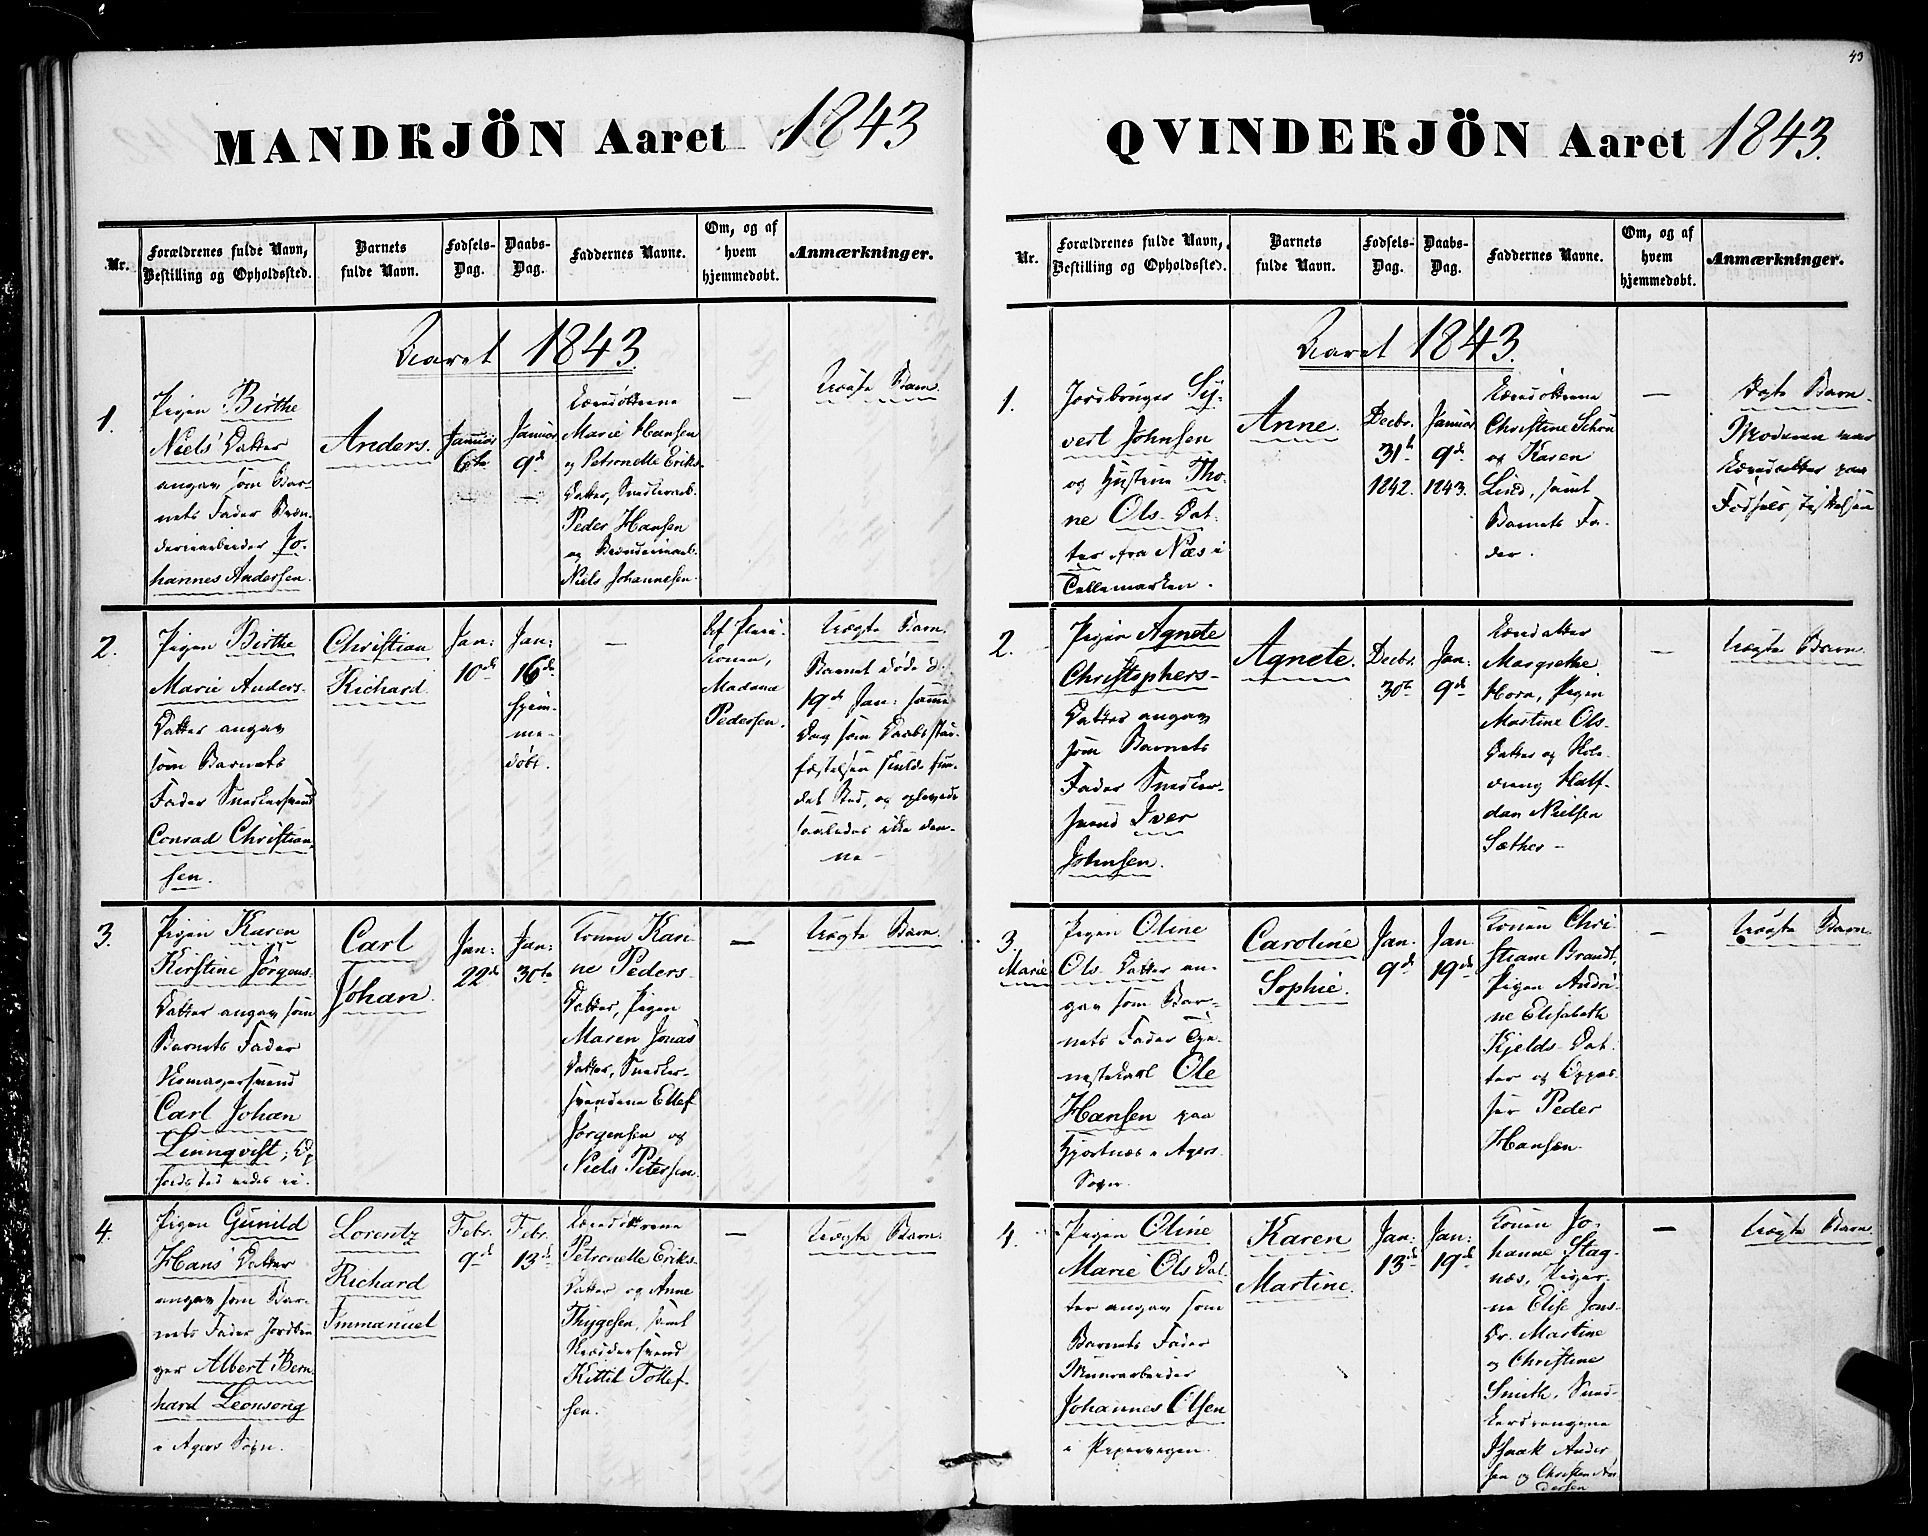 43
MANDKJÖN Aaret 1843
Nr.
Forældrenes fulde Navn,
Bestilling og Opholdssted.
Barnets
fulde Navn.
Fødsels-
Dag.
Daabs-
Dag.
Faddernes Navne.
Om, og af
hvem
hjemmedøbt.
Anmærkninger.
Aaret 1843.
1.
Pigen Birthe
Niels' Datter
angav som Bar-
nets Fader
Jo-
hannes Andersen.
Anders.
Januar
6te
Januar
9de
Marie Hansen
og Petronelle Eriks-
Datter,
Peder Hansen
og
Niels Johannesen.
—
Uægte Barn
2.
Pigen Birthe
Marie Anders-
Datter angav
som Barnets
Fader Snedkersvend
Conrad Christian-
sen.
Christian
Richard.
Jan:
10de
Jan:
16de
hjem-
me-
døbt.
—
Af
Madame
Pedersen.
Uægte Barn.
Barnet døde d.
19de Jan: samme
Dag som Daabs stad-
fæstelsen skulde fun-
det Sted, og oplevede
saaledes ikke den-
ne —
3.
Pigen Karen
Kirstine Jörgens-
Datter angav som
Barnets Fader
svend
Carl Johan
Linnqvist,
Carl
Johan.
Jan:
22de
Jan:
30te
Konen Kan-
ne Peders-
Datter, Pigen
Maren Jonas
Datter, Snedker-
svendene Ellef
Jörgensen og
Niels Petersen.
—
Uægte Barn.
4.
Pigen Gunild
Hans' Datter
angav som Bar-
nets Fader Jordbru-
ger Albert Bern-
hard Leonsong
i Agers Sogn.
Lorentz
Richard
Immanuel
Febr.
9de
Febr.
13de
Petronelle Eriks-
Datter og Anne
Thygesen, samt
Skræddersvend
Kittil Tollef-
sen.
—
Uægte Barn.
QVINDEKJÖN Aaret 1843.
Nr.
Forældrenes fulde Navn,
Bestilling og Opholdssted.
Barnets
fulde Navn.
Fødsels-
Dag.
Daabs-
Dag.
Faddernes Navne.
Om, og af
hvem
hjemmedøbt.
Anmærkninger.
Aaret 1843.
1.
Jordbruger Sy-
vert Johnsen
og Hustrue Tho-
ne Ols- Dat-
ter fra Næs i
Tellemarken.
Anne.
Decbr.
31te
1842.
Januar
9de
1843.
Christine Schou
og Karen
Lind, samt
Barnets Fa-
der.
—
Ægte Barn.
Moderen var
paa
Fødsels stiftelsen
2.
Pigen Agnete
Christophers-
Datter angav
som Barnets
Fader Snedker-
svend Iver
Johnsen.
Agnete.
Decbr.
30te
Jan:
9de
Margrethe
Horn, Pigen
Martine Ols-
Datter og
Half-
dan Nielsen
Sæther —
—
Uægte Barn
3.
Marie
Pigen Oline
Ols- Datter an-
gav som Bar-
nets Fader Tje-
nestekarl Ole
Hansen paa
Hjortnæs i Agers
Sogn.
Caroline
Sophie.
Jan.
9de
Jan.
19de
Konen Chri-
stiane Brandt,
Pigen Andri-
ne Elisabeth
Kjelds- Dat-
ter og Oppas-
ser Peder
Hansen.
—
Uægte Barn.
4.
Pigen Oline
Marie Ols Dat-
ter angav som
Barnets Fader
Muurarbeider
Johannes Olsen
i Pipervigen.
Karen
Martine.
Jan:
13de
Jan:
19de
Konen Jo-
hanne Stag-
næs, Piger-
ne Elise Jons-
Dr. Martine
og Christine
Smith, Sned-
Isaak Ander-
sen og Christen An-
dersen
—
Uægte Barn